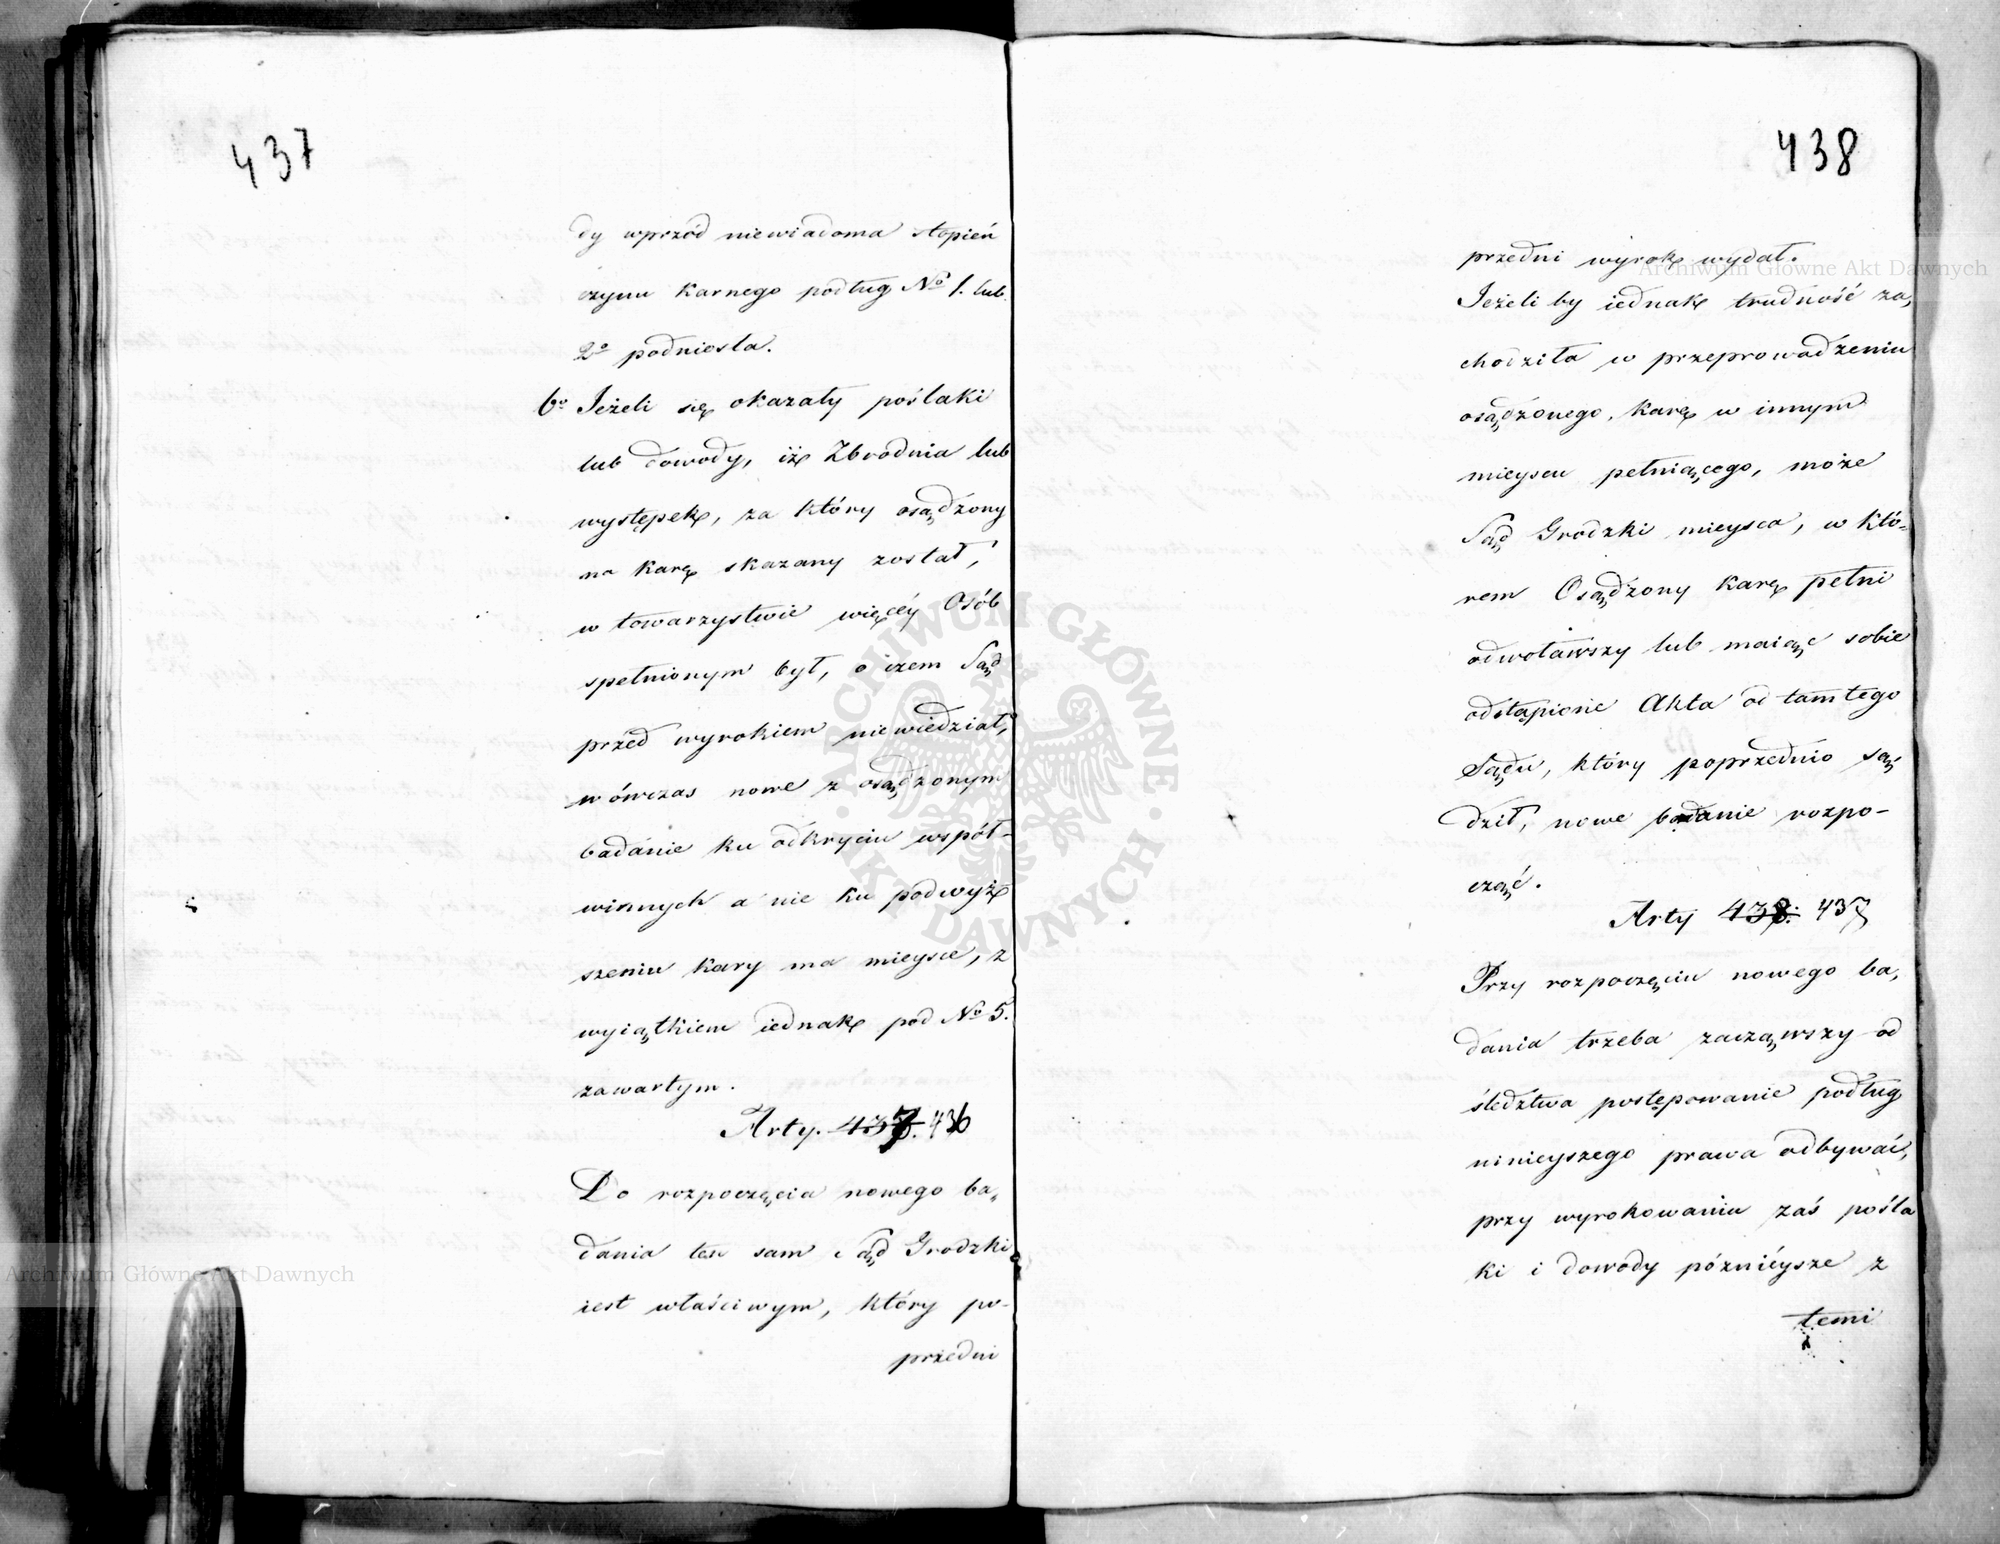 437
dy wprzód niewiadoma stopień
czynu karnego podług No 1. lub
2o podniesła.
6o Jeżeli się okazały poślaki
lub dowody, iż Zbrodnia lub
występek, za który osądzony
na karę skazany został,
w towarzystwie więcéy Osób
spełnionym był, o czem Sąd
przed wyrokiem niewiedział,
wówczas nowe z osądzonym
badanie ku odkryciu współ-
winnych a nie ku podwyż
szeniu kary ma mieysce, z
wyiątkiem iednak pod No 5.
zawartym.
Arty. 437. 436
Do rozpoczęcia nowego ba„
dania ten sam Sąd Grodzki
iest właściwym, który po-
przedni
438
przedni wyrok wydał.
Jeżeli by iednak trudność za„
chodziła w przeprowadzeniu
osądzonego, karę w innym
mieyscu pełniącego, może
Sąd Grodzki mieysca, w któ-
rem Osądzony karę pełni
odwoławszy lub maiąc sobie
odstąpione Akta od tamtego
Sądu, który poprzednio są„
dził, nowe badanie rozpo-
cząć.
Arty 438. 437
Przy rozpoczęciu nowego ba„
dania trzeba zacząwszy od
śledztwa postępowanie podług
ninieyszego prawa odbywać,
przy wyrokowaniu zaś pośla
ki i dowody późniéysze z
temi
Archiwum Główne Akt Dawnych
Archiwum Główne Akt Dawnych
ARCHIWUM GŁÓWNE AKT DAWNYCH